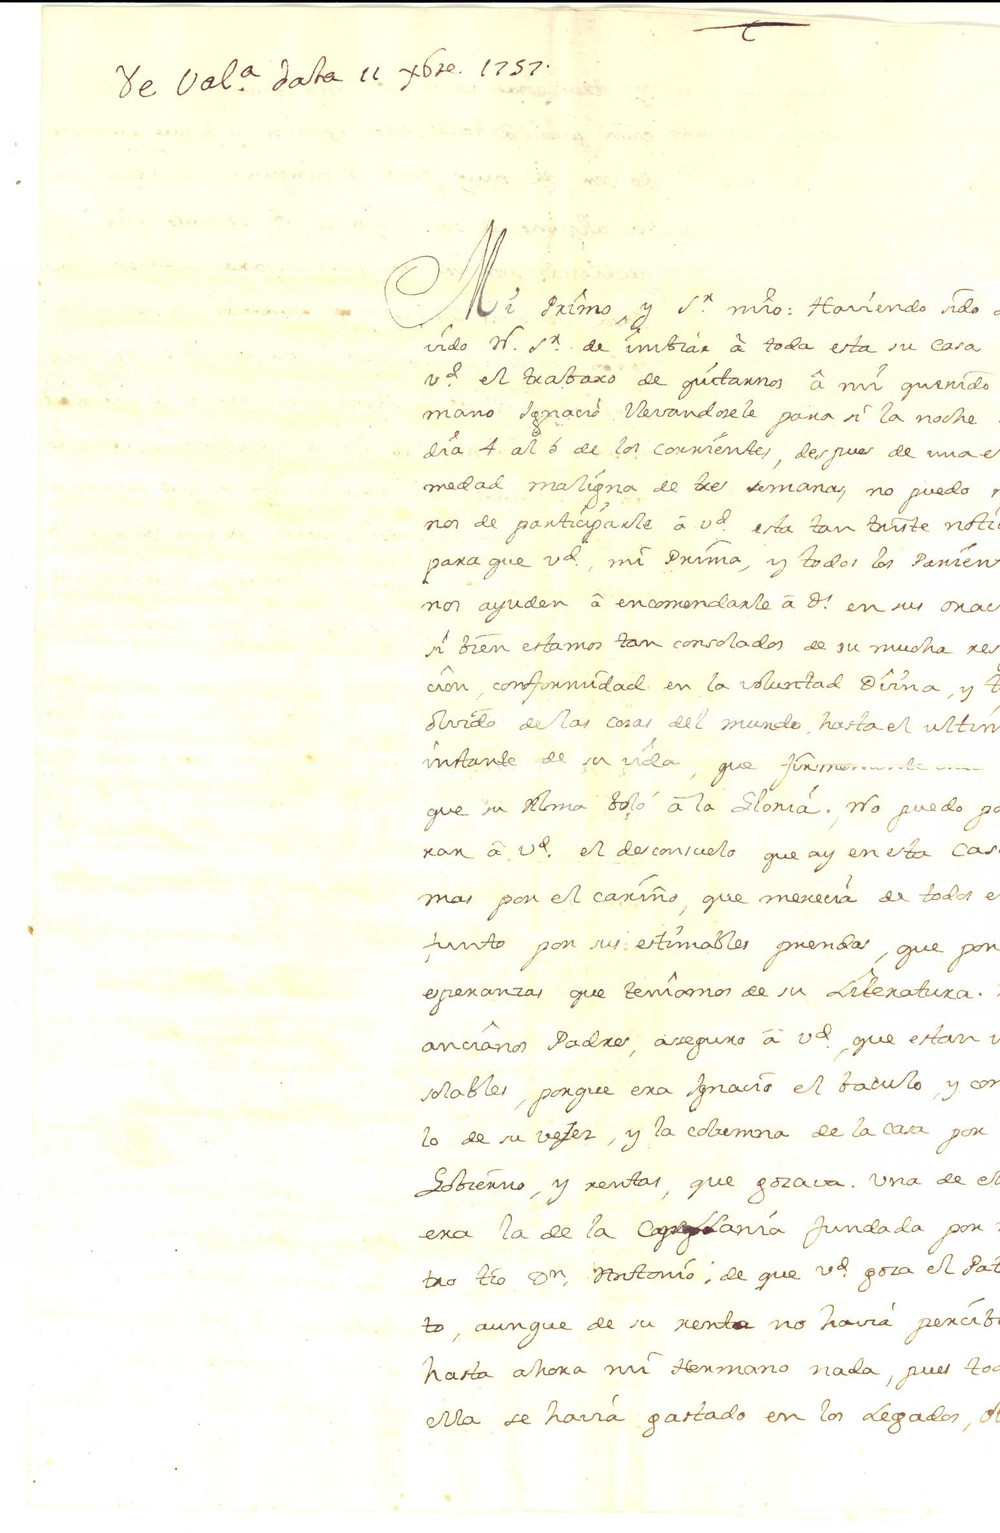 De Val.ª data 11 xbre. 1757.
Mi Primo, y S.r mío: Haviendo sido
vido N. S.r de imbiar â toda esta su casa
v.d el trabaxo de quitarnos â mi querido
mano Ignacio llevandosele para sí la noche
día 4 al 5 de los corrientes, despues de una e
medad maligna de tres semanas, no puedo
nos de participarle â v.d esta tan triste notic
para que v.d, mi Prima, y todos los Parien
nos ayuden â encomendarle â D.s en sus orac
si bien estamos tan consolados de su mucha res
ción, conformidad en la voluntad Divina, y
olvido de las cosas del mundo, hasta el ultim
instante de su vida, que
que su Alma boló â la Gloria. No puedo po
rar â v.d el desconsuelo que ay en esta Cas
mas por el cariño, que merecia de todos e
junto por sus estimables prendas, que por
esperanzas que teniamos de su Literatura.
ancianos Padres, aseguro â v.d, que estan
solables, porque era Ignacio el baculo, y con
lo de su vejez, y la columna de la casa por
Gobierno, y rentas, que gozava. Una de el
era la de la Capellanía fundada por
tro tío D.n Antonio, de que v.d goza el Pat
to, aunque de su renta no havia percibi
hasta ahora mi Hermano nada, pues to
ella se havia gastado en los Legados,